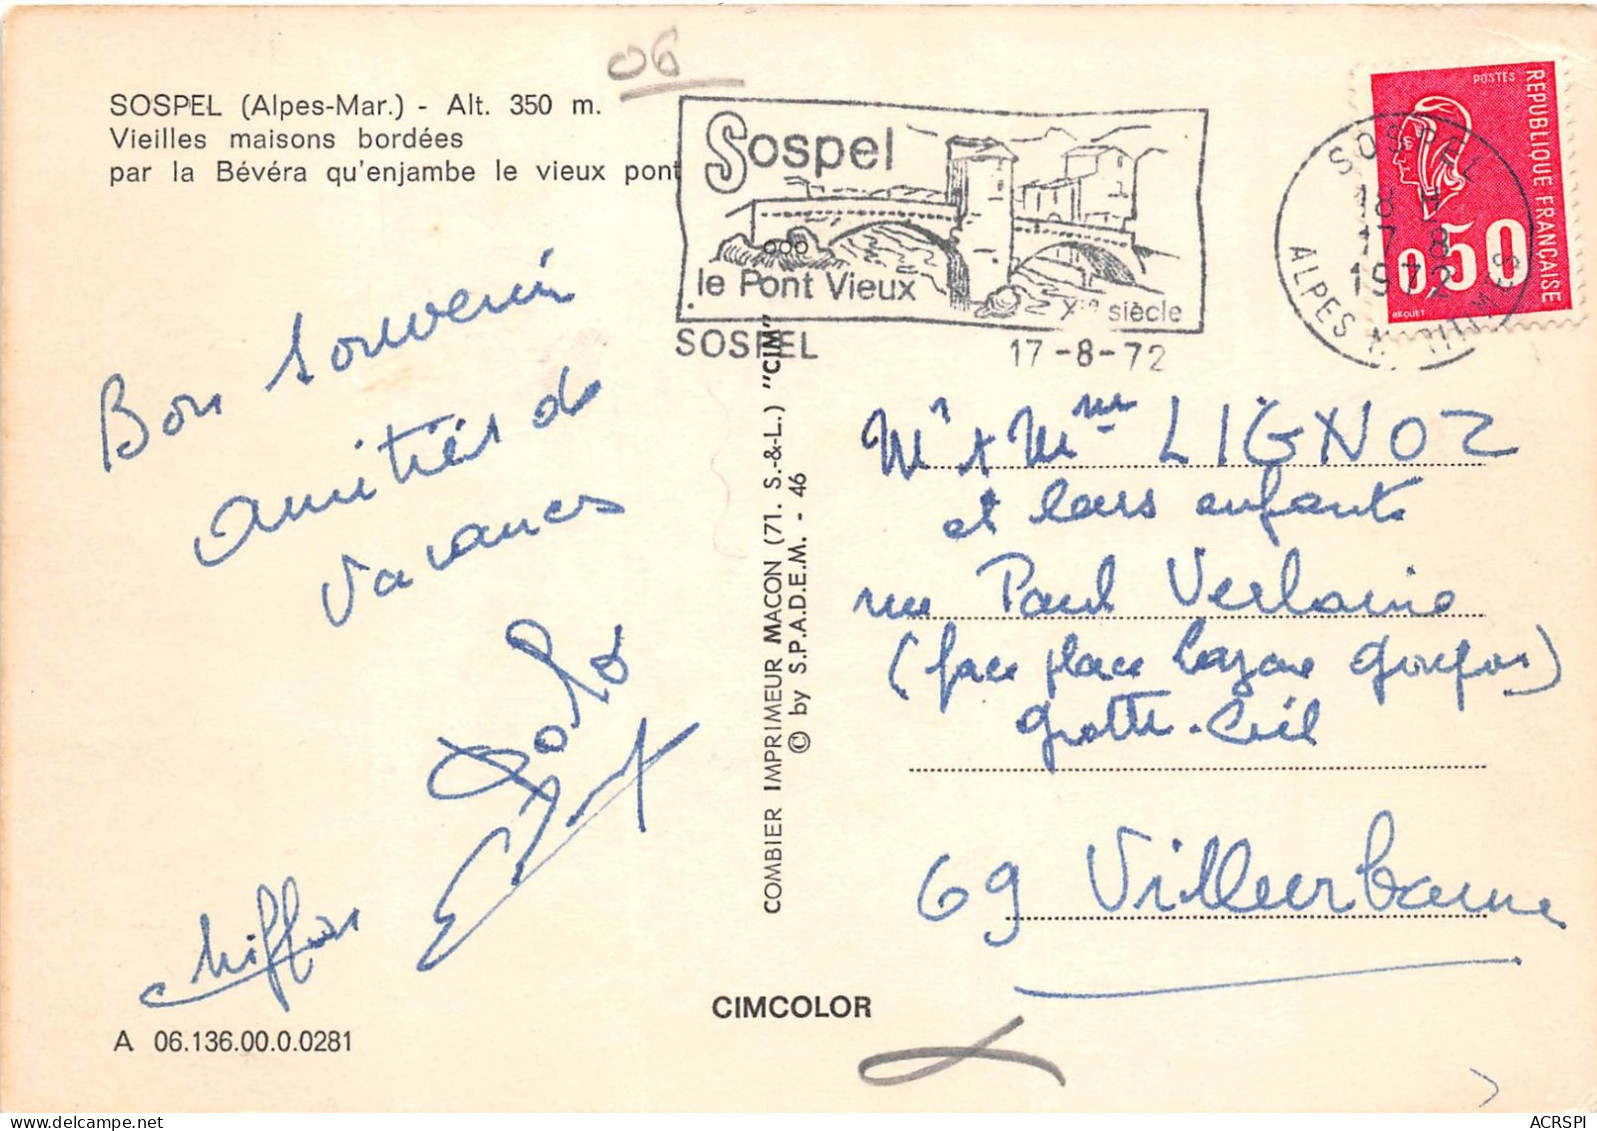 06
SOSPEL (Alpes-Mar.) - Alt. 350 m.
Vieilles maisons bordées
par la Bévéra qu'enjambe le vieux pont
Sospel
le Pont Vieux
XIe siècle
SOSPEL
17-8-72
SOSPEL
18 H
17 8
1972
ALPES MARITIMES
POSTES
REPUBLIQUE FRANÇAISE
0,50
BEQUET
Bon souvenir
amitiés de
vacances
chiffon
A 06.136.00.0.0281
COMBIER IMPRIMEUR MACON (71. S.-&-L.) "CIM"
© by S.P.A.D.E.M. - 46
CIMCOLOR
Mr & Mme LIGNOZ
et leurs enfants
rue Paul Verlaine
(face place Lazare Goujon)
Gratte-Ciel
69 Villeurbanne
ACRSPI